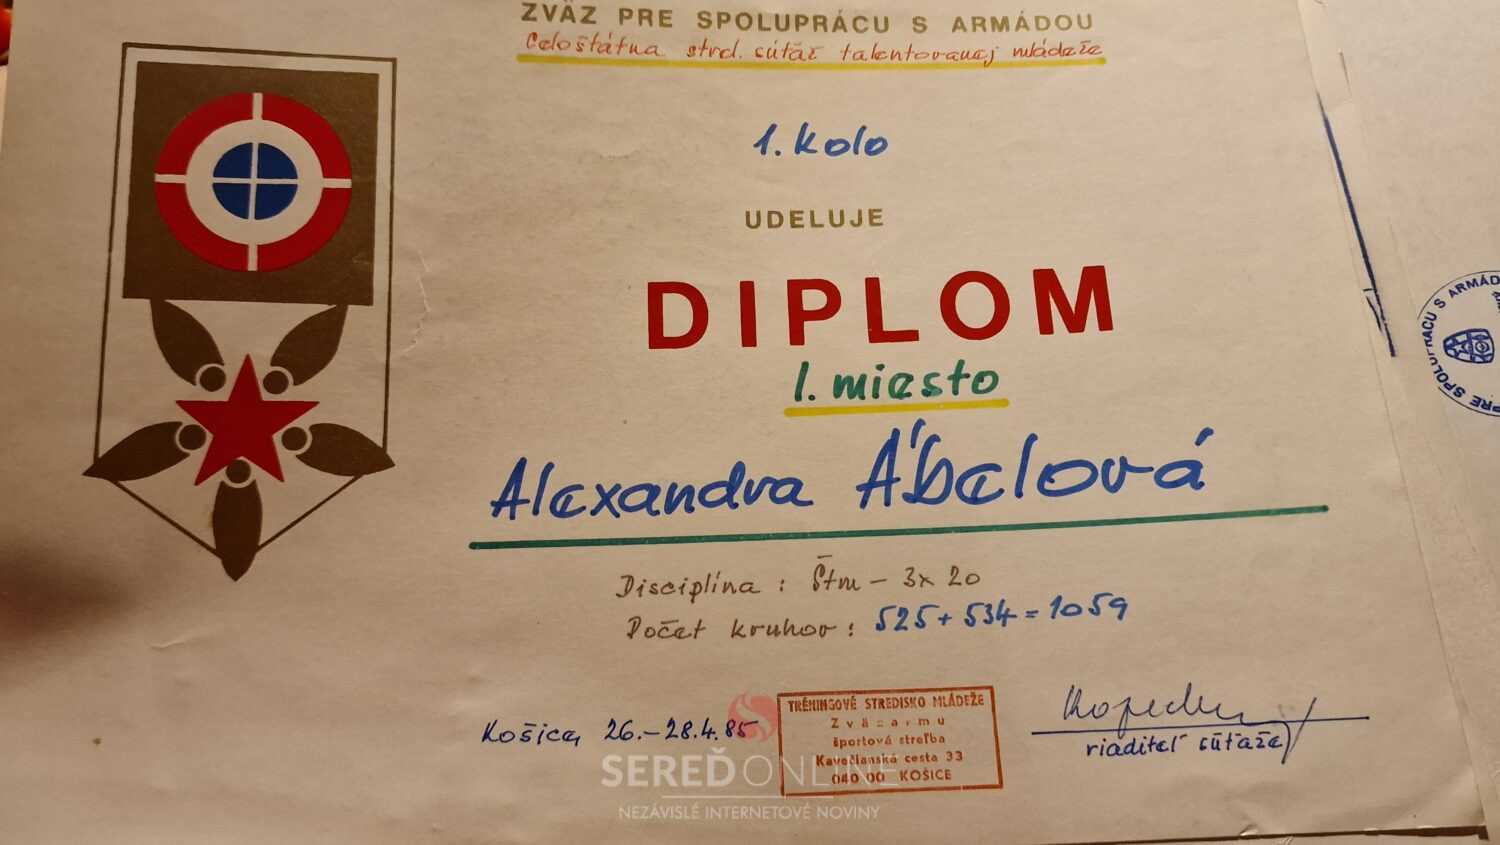 ZVÄZ PRE SPOLUPRÁCU S ARMÁDOU
Celoštátna strel. súťaž talentovanej mládeže
1. kolo
UDELUJE
DIPLOM
1. miesto
Alexandra Ábelová
Disciplína : Štm - 3x20
Počet kruhov : 525 + 534 = 1059
Košice, 26.-28.4.85
TRÉNINGOVÉ STREDISKO MLÁDEŽE
Zväzarmu
športová streľba
Kavečianska cesta 33
040 00 KOŠICE
riaditeľ súťaže
PRE SPOLUPRÁCU S ARMÁD
SEREĎ ONLINE
NEZÁVISLÉ INTERNETOVÉ NOVINY